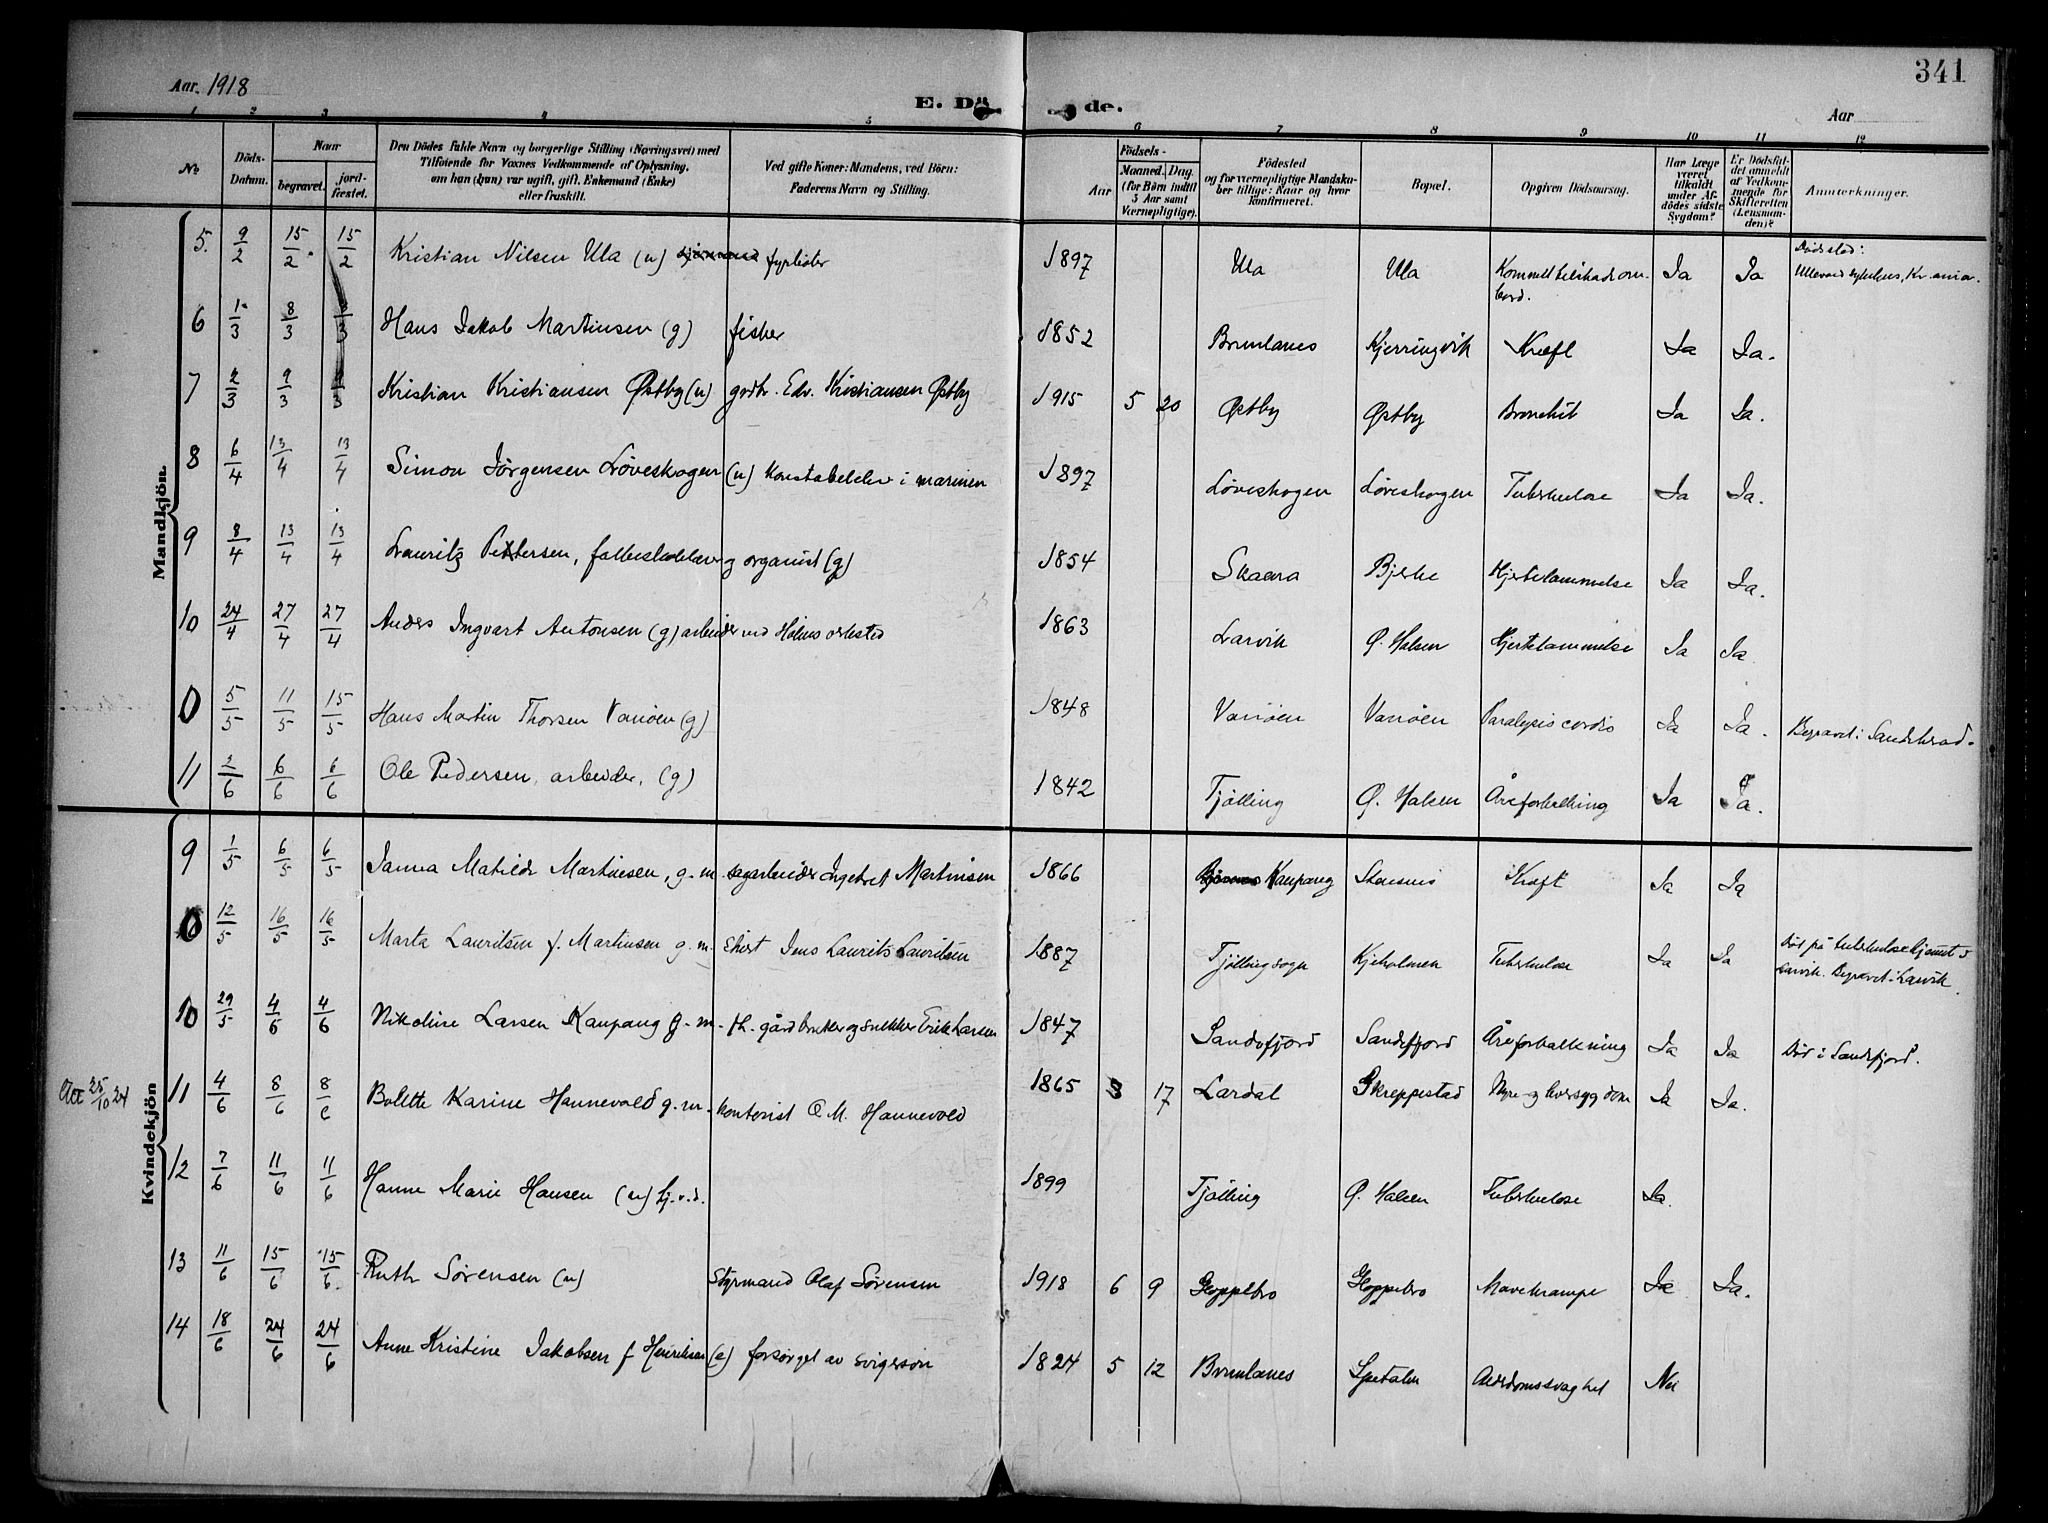 341
Aar 1918
E. Dö de.
Aar
1 2 3 4 5 6 7 8 9 10 11 12
No
Döds-Datum.
Naar
begravet.
jord-fæstet.
Den Dödes fulde Navn og borgerlige Stilling (Næringsvei) med
Tilföiende for Voxnes Vedkommende af Oplysning,
om han (hun) var ugift, gift, Enkemand (Enke)
eller fraskilt.
Ved gifte Koner: Mandens, ved Börn:
Faderens Navn og Stilling.
Födsels-
Aar
Maaned. Dag.
(for Börn indtil
3 Aar samt
Værnepligtige).
Födested
og for værnepligtige Mandska-
ber tillige: Aar og hvor
konfirmeret.
Bopæl.
Opgiven Dödsaarsag.
Har Læge
været
tilkaldt
under Af-
dödes sidste
Sygdom?
Er Dödsfal-
det anmeldt
af Vedkom-
mende for
Skifteretten
(Lensman-
den)?
Anmærkninger.
Mandkjön.
5. 9/2 15/2 15/2 Kristian Nilsen Ula (u) fyrbøter 1897 Ula Ula Ja Ja Dødssted:
bord. Ullevaal sykehus, Kr.ania.
6 1/3 8/3 8/3 Hans Jakob Martinsen (g) fisker 1852 Brunlanes Kjerringvik Kræft Ja Ja.
7 2/3 9/3 9/3 Kristian Kristiansen Østby (u) gaardbr. Edv. Kristiansen Østby 1915 5 20 Østby Østby Bronchit Ja Ja.
8 6/4 13/4 13/4 Simon Jørgensen Løveskogen (u) konstabelelev i marinen 1897 Løveskogen Løveskogen Tuberkulose Ja Ja.
9 8/4 13/4 13/4 Lauritz Pettersen, folkeskolelærer og organist (g) 1854 Skaara Bjerke Hjertelammelse Ja Ja.
10 24/4 27/4 27/4 Anders Ingvart Antonsen (g) arbeider ved 1863 Larvik Ø. Halsen Hjertelammelse Ja Ja
0 5/5 11/5 15/5 Hans Martin Thorsen Variøen (g) 1848 Variøen Variøen Paralysis cordis Ja Ja. Begravet i Sandeherad.
11 2/6 6/6 6/6 Ole Pedersen, arbeider, (g) 1842 Tjølling Ø. Halsen Åreforkalkning Ja Ja.
Kvindekjön
9 1/5 6/5 6/5 Janna Matilde Martinsen, g. m. sagarbeider Ingebret Martinsen 1866 Kaupang Kræft Ja Ja
0 12/5 16/5 16/5 Marta Lauritsen f. Martinsen g. m. Jens Laurits Lauritsen 1887 Tjøllingsogn Kjeholmen Tuberkulose Ja Ja Død på tuberkulosehjemmet i
Larvik. Begravet i Larvik.
10 29/5 4/6 4/6 Nikoline Larsen Kaupang g. m. fh. gårdbruker og snekker Erik Larsen 1847 Sandefjord Sandefjord Åreforkalkning Ja Ja Død i Sandefjord.
Att 25/10 24 11 4/6 8/6 8/6 Bolette Karine Hannevold g. m. kontorist O. M. Hannevold 1865 3 17 Lardal Skreppestad Nyre- og leversygdom Ja Ja.
12 7/6 11/6 11/6 Hanne Marie Hansen (u) hj.v.d. 1899 Tjølling Ø. Halsen Tuberkulose Ja.
13 11/6 15/6 15/6 Ruth Sørensen (u) Styrmand Olaf Sørensen 1918 6 9 Gloppebro Gloppebro Mavekrampe Ja Ja.
14 18/6 24/6 24/6 Anne Kristine Jakobsen f. Henriksen (e) forsørget av svigersøn 1824 5 12 Brunlanes Alderdomssvaghet Nei